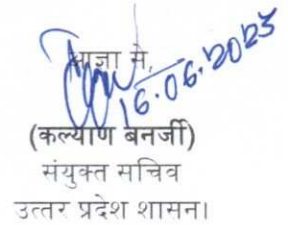 आज्ञा से,
16.06.2023
(कल्याण बनर्जी)
संयुक्त सचिव
उत्तर प्रदेश शासन।